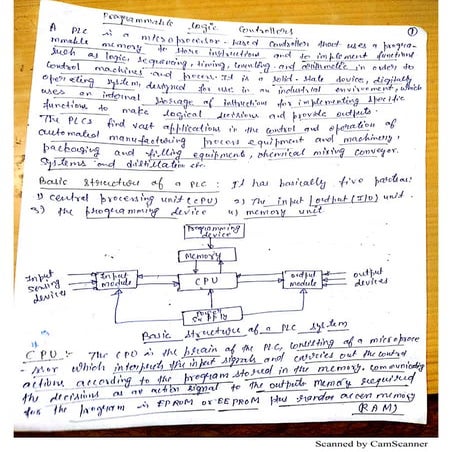 Programmable Logic Controllers
①
A PLC is a microprocessor-based controller that uses a progra-
mmable memory to store instructions and to implement functions
such as logic, sequencing, timing, counting and arithmetic in order to
control machines and process. It is a solid-state device, digitally
operating system, designed for use in an industrial environment, which
uses an internal storage of instructions for implementing specific
functions to make logical decisions and provide outputs.
The PLCs find vast applications in the control and operation of
automated manufacturing process equipment and machinery,
packaging and filling equipment, chemical mixing conveyor
systems and distillation etc.
Basic structure of a PLC : It has basically five
1) central processing unit (CPU) 2) The input/output (I/O) unit
3) the programming device 4) memory unit
Programming device
Memory
Input sensing devices
Input module
CPU
output module
output devices
Power Supply
Basic Structure of a PLC system
CPU :- The CPU is the brain of the PLC, consisting of a microproce
-ssor which interprets the input signals and carries out the control
actions, according to the program stored in the memory, communicating
the decisions as an action signal to the outputs memory required
for the program in EPROM or EEPROM plus random access memory
(RAM)
Scanned by CamScanner